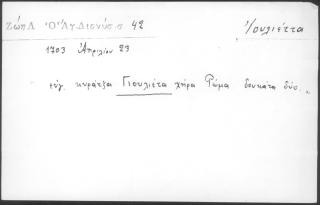 Ζώη Λ Ὁ Ἅγ. Διονύσιος 42
Γιουλιέττα
1703 Ἀπριλίου 23
εὐγ. κυράτζα Γιουλιέτα χήρα Ρώμα δουκάτα δύο.